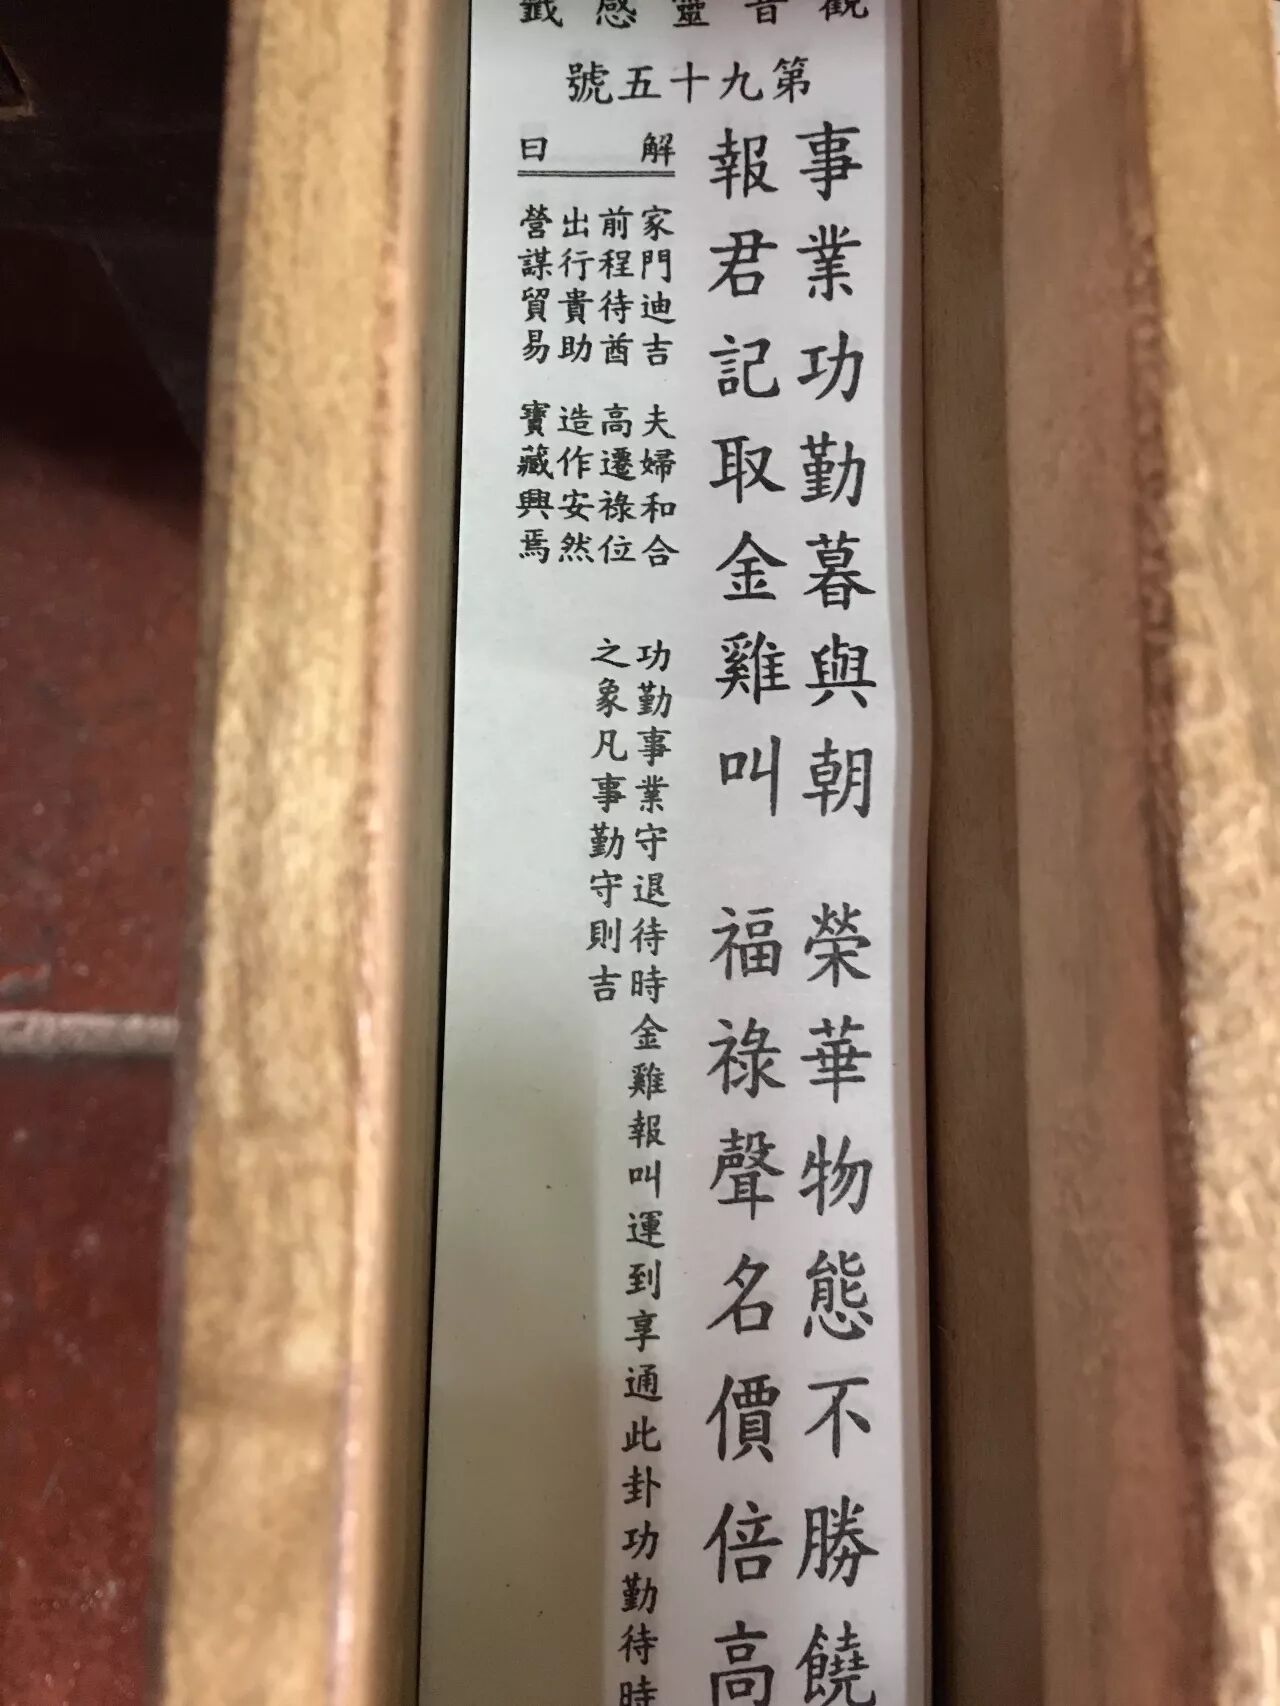 觀音靈感籤
第九十五號
事業功勤暮與朝　榮華物態不勝饒
報君記取金雞叫　福祿聲名價倍高
解曰
家門迪吉　夫婦和合
前程待酋　高遷祿位
出行貴助　造作安然
營謀貿易　寶藏興焉
功勤事業守退待時金雞報叫運到享通此卦功勤待時
之象凡事勤守則吉